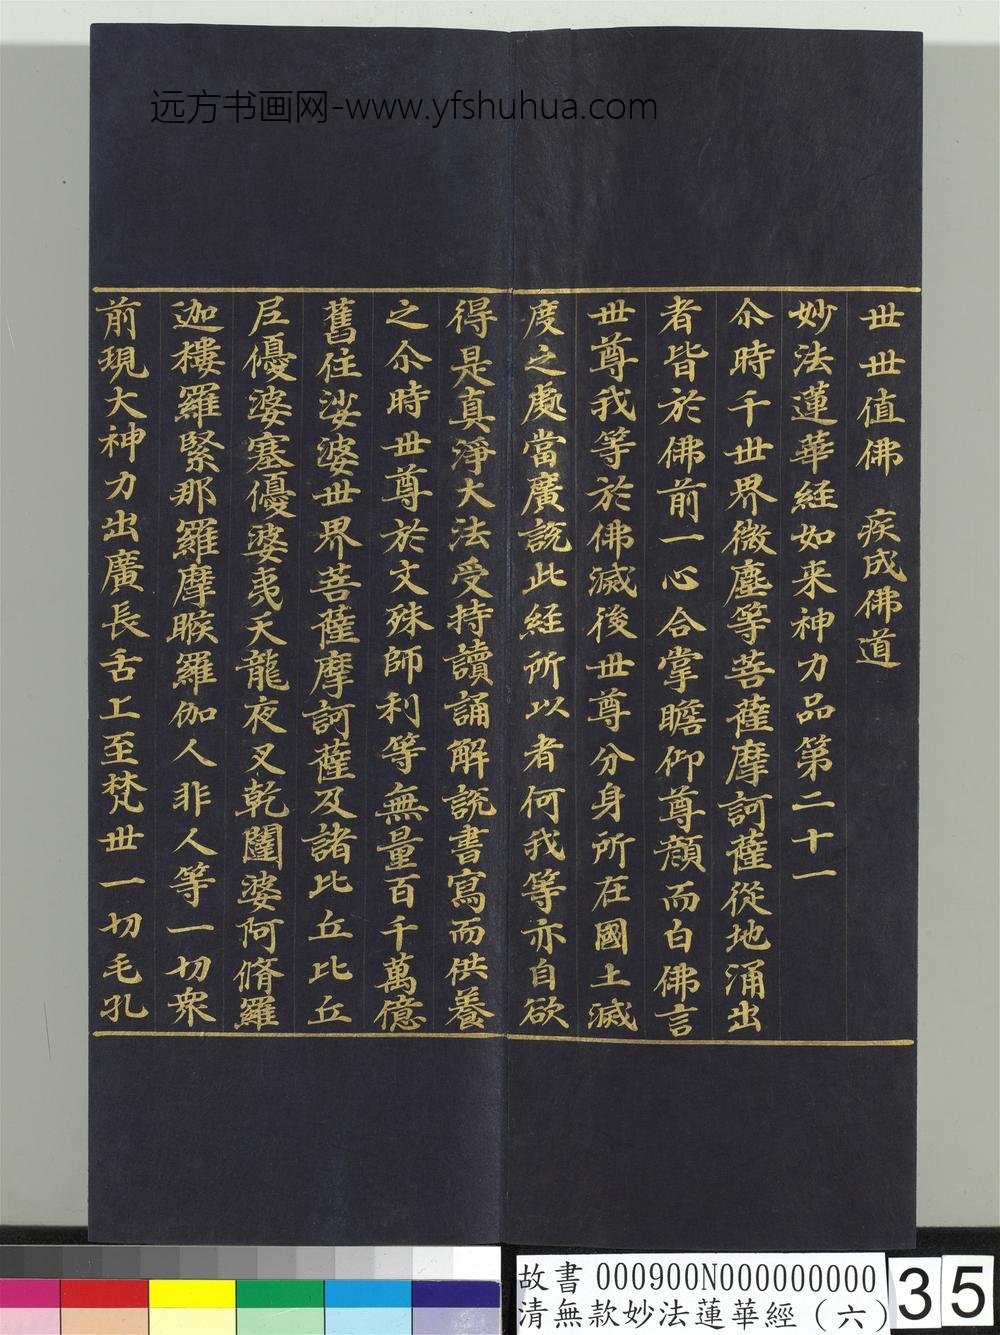 远方书画网-www.yfshuhua.com
世世值佛 疾成佛道
妙法蓮華経如来神力品第二十一
尒時千世界微塵等菩薩摩訶薩從地涌出
者皆於佛前一心合掌瞻仰尊顏而白佛言
世尊我等於佛滅後世尊分身所在國土滅
度之處當廣說此経所以者何我等亦自欲
得是真淨大法受持讀誦解說書寫而供養
之尒時世尊於文殊師利等無量百千萬億
舊住娑婆世界菩薩摩訶薩及諸比丘比丘
尼優婆塞優婆夷天龍夜叉乾闥婆阿脩羅
迦樓羅緊那羅摩睺羅伽人非人等一切衆
前現大神力出廣長舌上至梵世一切毛孔
故書 000900N000000000
清無款妙法蓮華經(六)
35